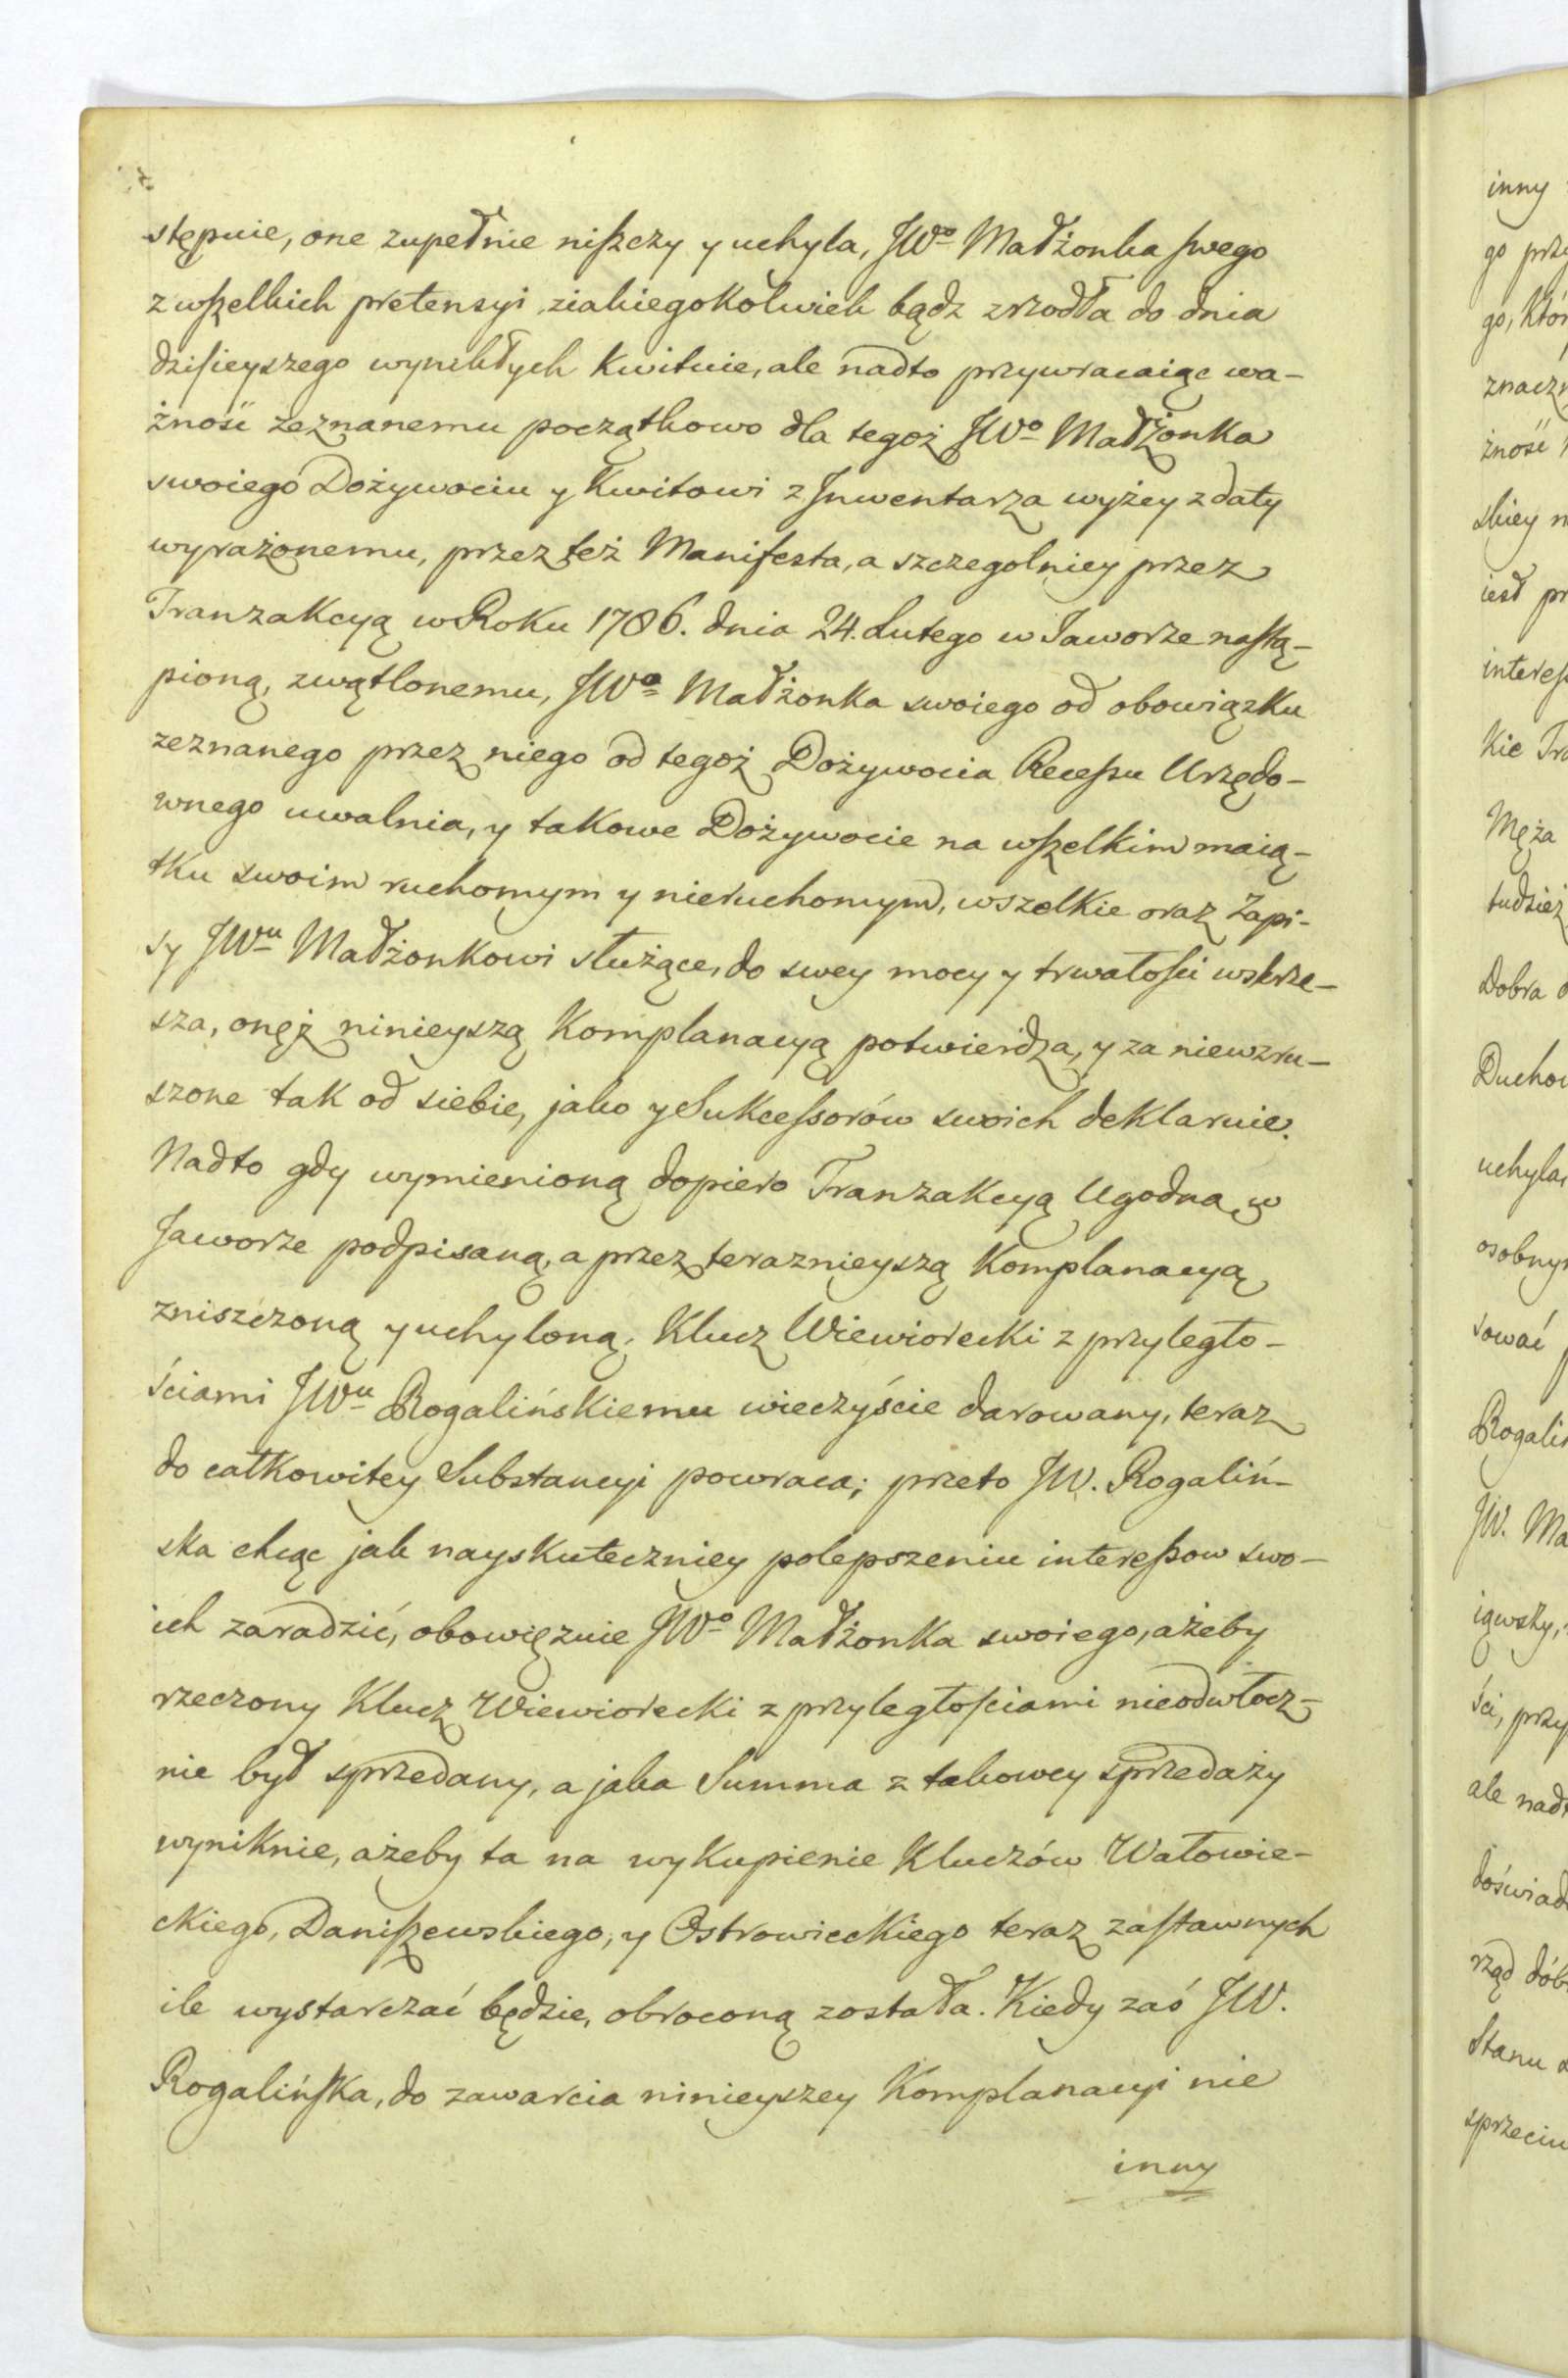 stępuie, one zupełnie niszczy y uchyla, JWo Małżonka swego
z wszelkich pretensyi ziakiegokolwiek bądz zrzodła do dnia
dzisieyszego wynikłych kwituie, ale nadto przywracaiąc wa-
żność zeznanemu początkowo dla tegoż JWo Małżonka
swoiego Dożywociu y Kwitowi z Jnwentarza wyżey z daty
wyrażonemu, przez też Manifesta, a szczegolniey przez
Tranzakcyą w Roku 1786. dnia 24. Lutego w Jaworze nastą-
pioną, zwątlonemu, JWo Małżonka swoiego od obowiązku
zeznanego przez niego od tegoż Dożywocia Recessu Urzędo-
wnego uwalnia, y takowe Dożywocie na wszelkim maią-
tku swoim ruchomym y nieruchomym, wszelkie oraz Zapi-
sy JWu Małżonkowi służące, do swey mocy y trwałości wskrze-
sza, onęż ninieyszą Komplanacyą potwierdza, y za niewzru-
szone tak od siebie, jako y Sukcessorów swoich deklaruie.
Nadto gdy wymienioną dopiero Tranzakcyą Ugodną w
Jaworze podpisaną, a przez teraznieyszą Komplanacyą
zniszczoną y uchyloną, Klucz Wiewiorecki z przyległo-
ściami JWu Rogalińskiemu wieczyście darowany, teraz
do całkowitey Substancyi powraca; przeto JW. Rogaliń-
ska chcąc jak nayskuteczniey polepszeniu interessow swo-
ich zaradzić, obowięzuie JWo Małżonka swoiego, ażeby
rzeczony Klucz Wiewiorecki z przyległościami nieodwłocz-
nie był sprzedany, a jaka Summa z takowey sprzedaży
wyniknie, ażeby ta na wykupienie Kluczów Watowie-
ckiego, Daniszewskiego, y Ostrowieckiego teraz zastawnych
ile wystarczać będzie, obroconą została. Kiedy zaś JW.
Rogalińska, do zawarcia ninieyszey Komplanacyi nie
inny
inny
go prze
go, któr
znaczn
żność
skiey n
iest pr
interess
kie Tra
Męża
tudzież
Dobra
Duchow
uchyla,
osobnym
sować
Rogaliń
JW. Ma
iąwszy,
ści, przy
ale nadt
doświad
rząd dóbr
Stanu
sprzeciw